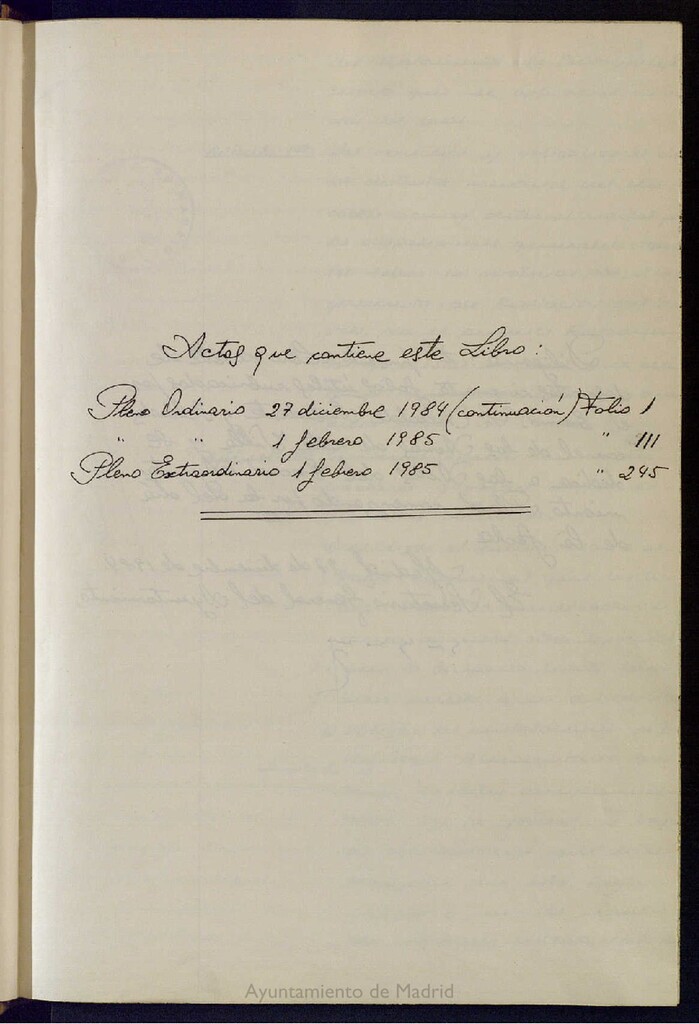 Actas que contiene este Libro:
Pleno Ordinario 27 diciembre 1984 (continuación) Folio 1
" " 1 febrero 1985 " 111
Pleno Extraordinario 1 febrero 1985 " 245
Ayuntamiento de Madrid